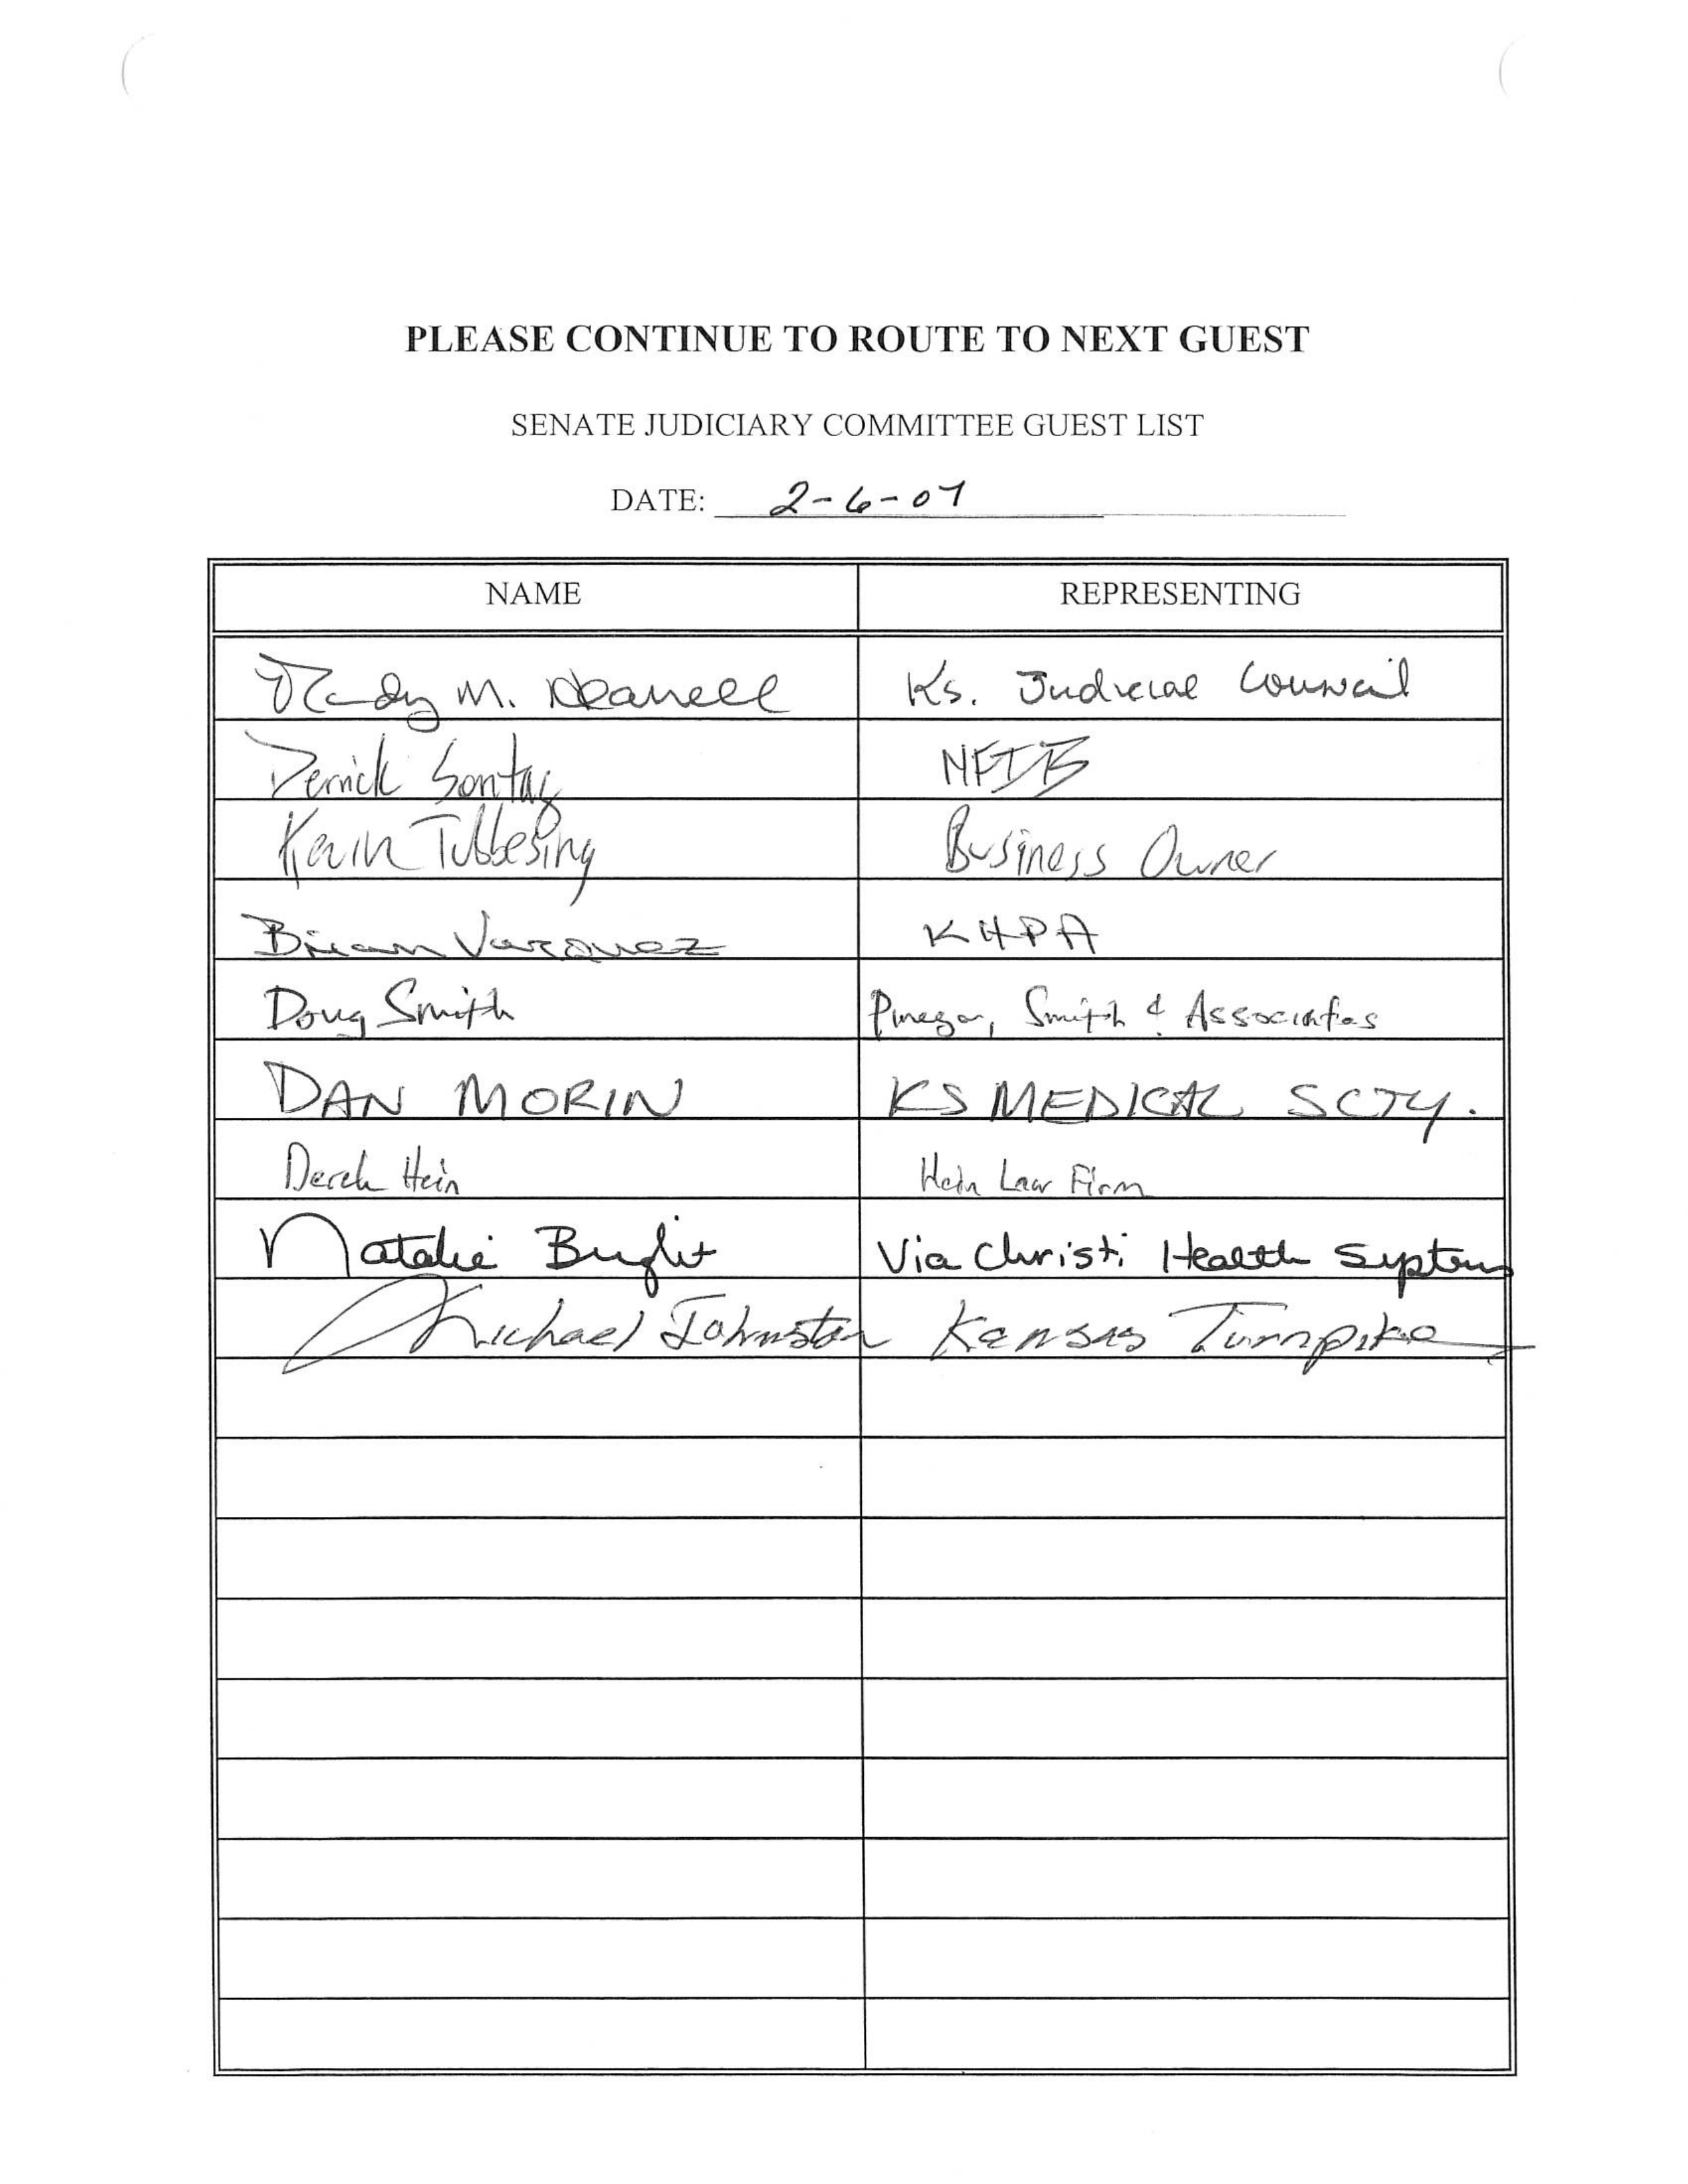 PLEASE CONTINUE TO ROUTE TO NEXT GUEST
SENATE JUDICIARY COMMITTEE GUEST LIST
DATE: 2-6-07
NAME REPRESENTING
M. Ks. Judicial Council
Derrick Sontag NFIB
Kevin Tubbesing Business Owner
Brian Vazquez KHPA
Doug Smith Pinegar, Smith & Associates
DAN MORIN KS MEDICAL SCTY.
Derek Hein Hein Law Firm
Natalie Bright Via Christi Health System
Michael Johnston Kansas Turnpike